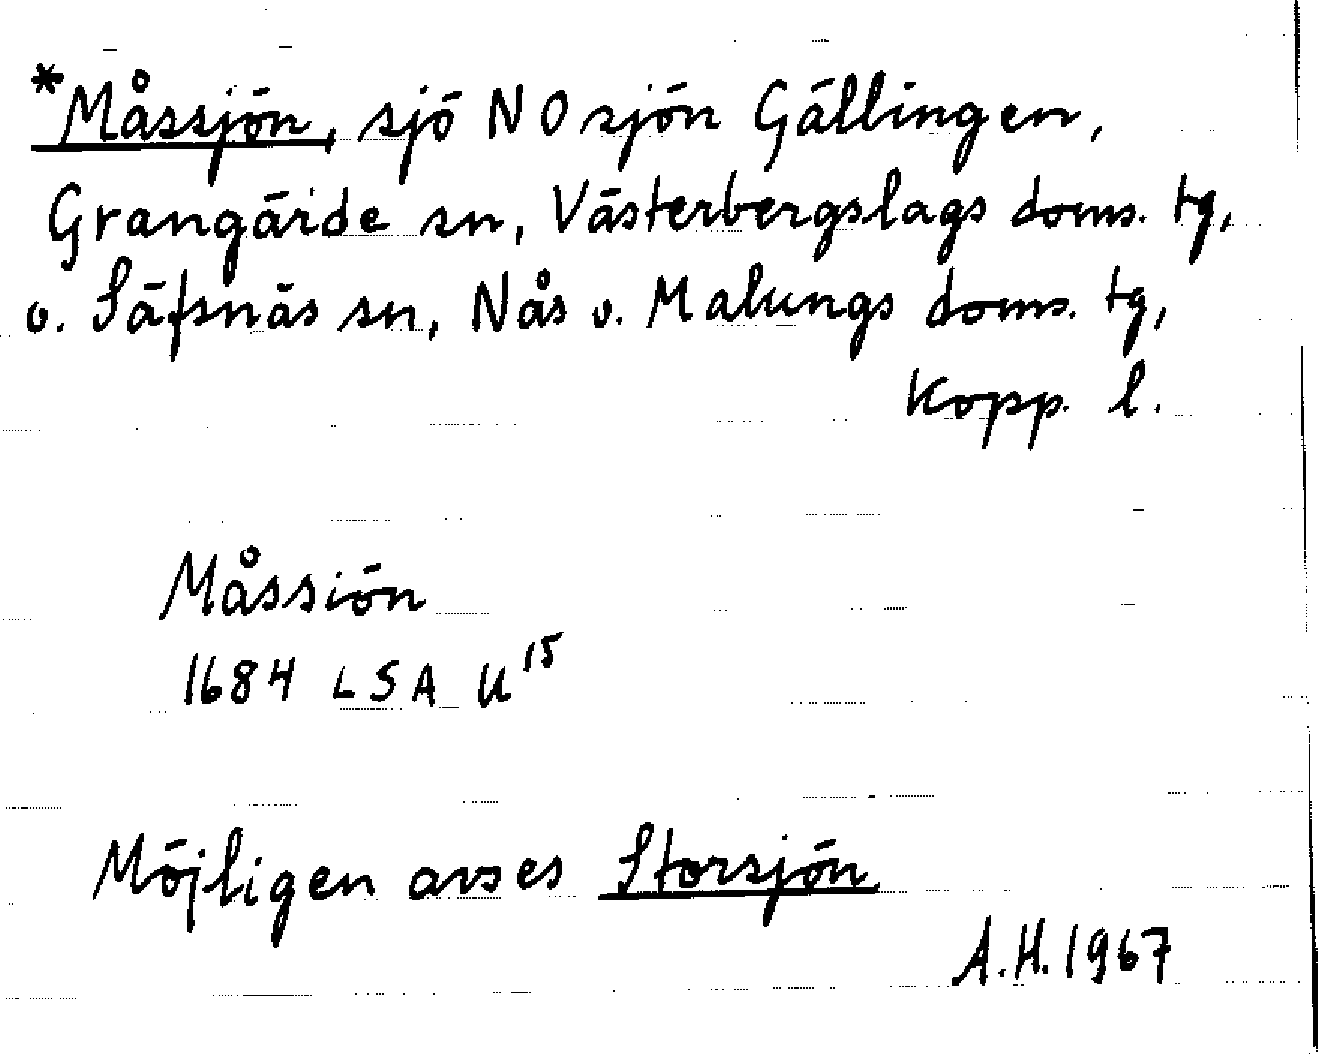 *Måssjön, sjö NO sjön Gällingen,
Grangärde sn, Västerbergslags doms. tg,
o. Säfsnäs sn, Nås o. Malungs doms. tg,
Kopp. l.
Måssiön
1684 LSA U¹⁵
Möjligen avses Storsjön
A.H. 1967